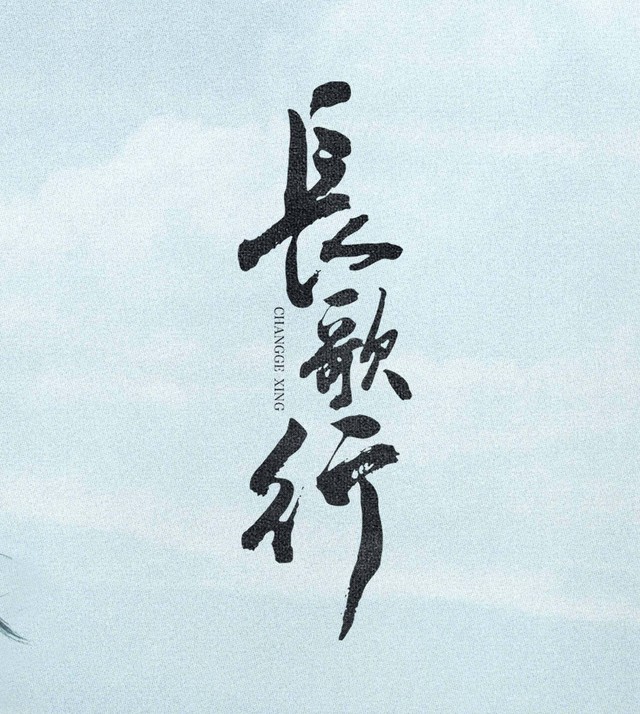 長歌行
CHANGGE XING